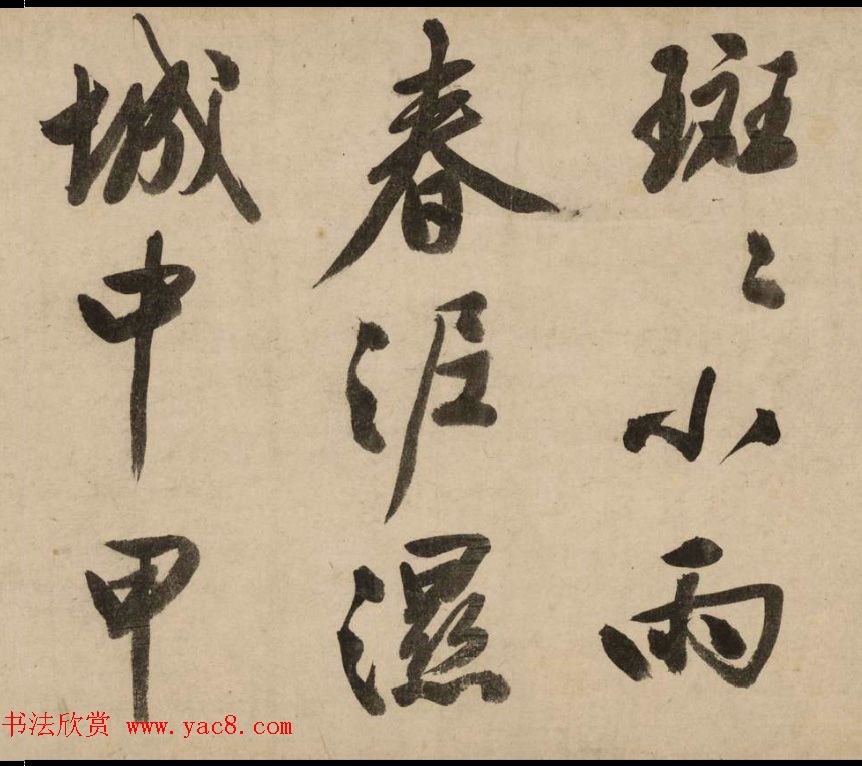 斑〻小雨
春泥濕
城中甲
书法欣赏 www.yac8.com